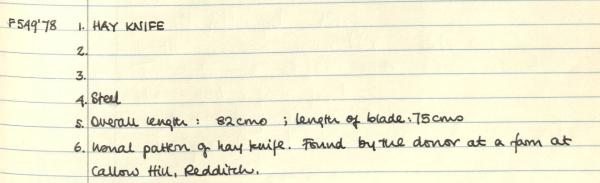 F549'78 1. HAY KNIFE
2.
3.
4. Steel
5. Overall length: 82cms ; length of blade: 75cms
6. Usual pattern of hay knife. Found by the donor at a farm at
Callow Hill, Redditch.